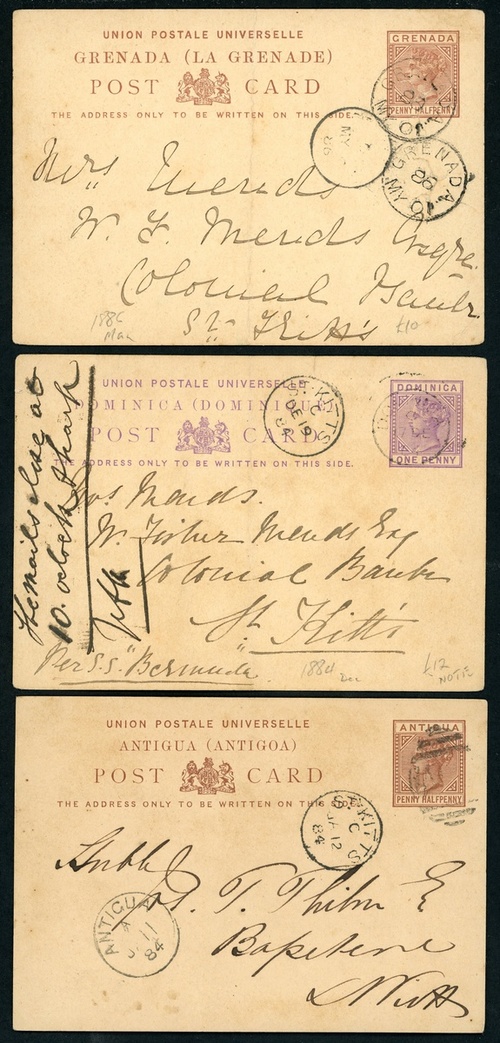 UNION POSTALE UNIVERSELLE
GRENADA (LA GRENADE)
POST CARD
THE ADDRESS ONLY TO BE WRITTEN ON THIS SIDE.
GRENADA
PENNY HALFPENNY
MY
86
GRENADA
86
MY
Mrs Mends
W. F. Mends Esqre
Colonial Bank
St Kitt's
1886
£10
UNION POSTALE UNIVERSELLE
DOMINICA (DOMINIQUE)
POST CARD
THE ADDRESS ONLY TO BE WRITTEN ON THIS SIDE.
DOMINICA
ONE PENNY
ST. KITTS
C
DE 19
84
The mails close at
10. oclock Sharp
Mends.
W. Fisher Mends Esq
Colonial Bank
St Kitt's
Per S.S. "Bermuda"
1884 Dec
£12
NOTE
UNION POSTALE UNIVERSELLE
ANTIGUA (ANTIGOA)
POST CARD
THE ADDRESS ONLY TO BE WRITTEN ON THIS
ANTIGUA
PENNY HALFPENNY
ST. KITTS
C
JA 12
84
Honble
T.
ANTIGUA
11
84
St Kitts